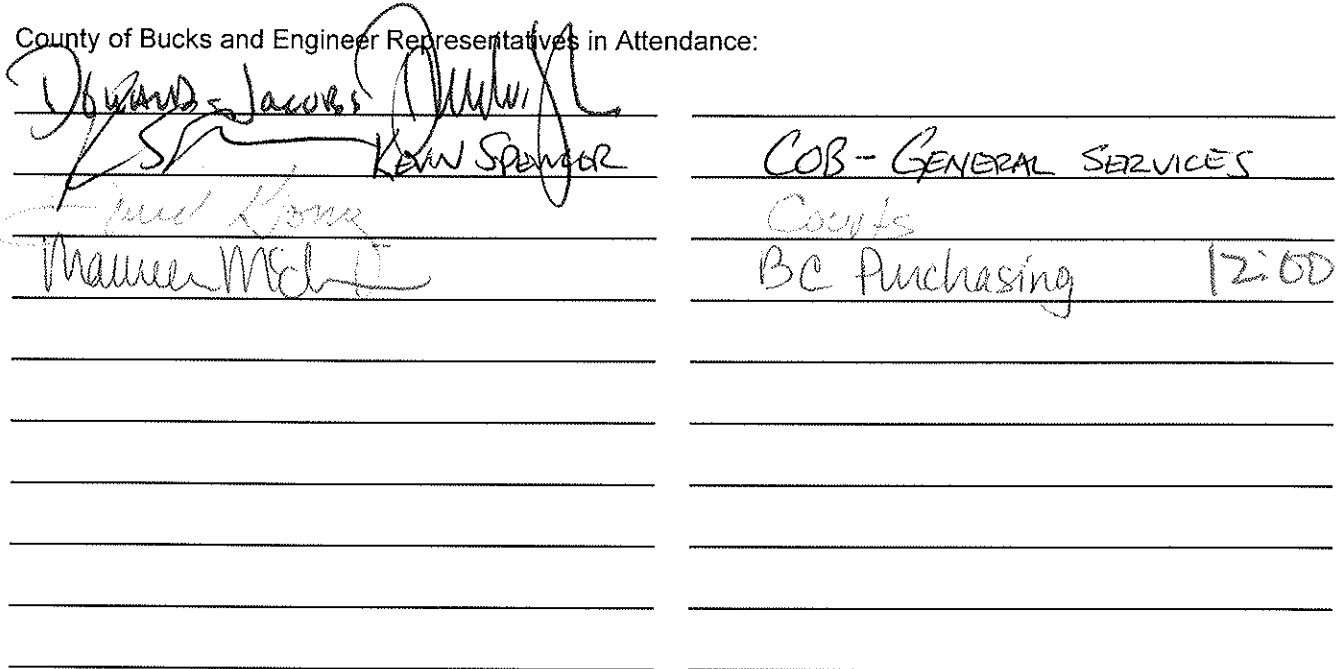 County of Bucks and Engineer Representatives in Attendance:
Jacobs
KEVIN SPENCER COB - GENERAL SERVICES
Courts
Maureen BC Purchasing 12:00